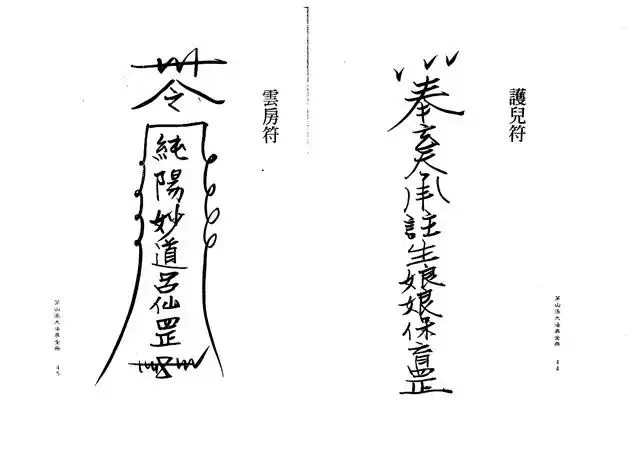 護兒符
奉玄天承註生娘娘保育罡
茅山法大法典全冊
44
雲房符
令
純陽妙道呂仙罡
茅山法大法典全冊
45